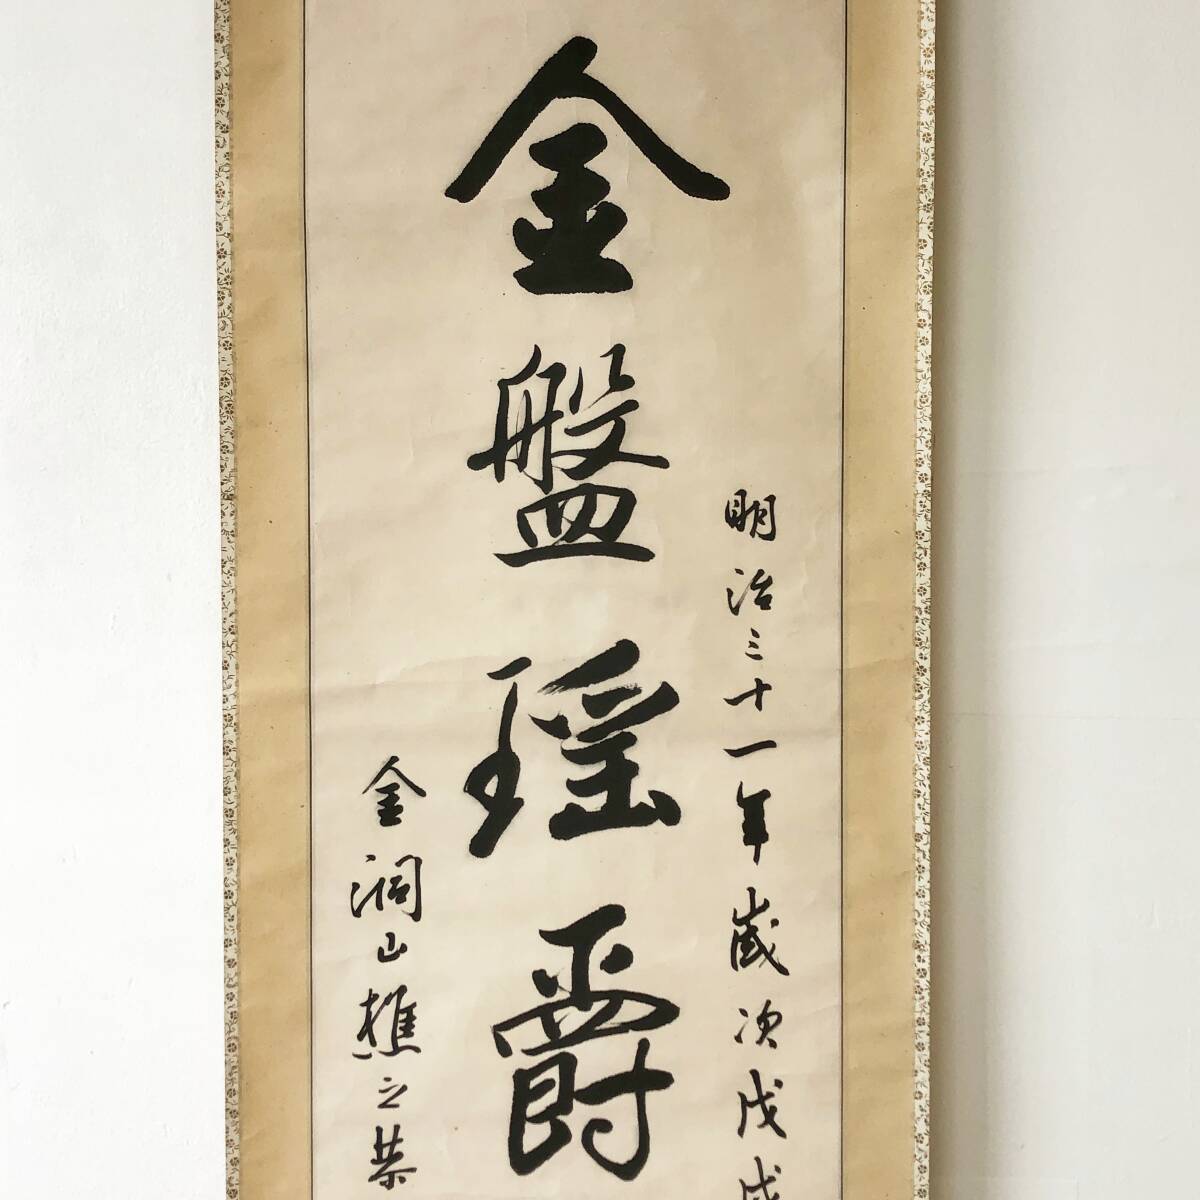 明治三十一年歳次戊戌
金盤瑶爵
金洞山樵之恭